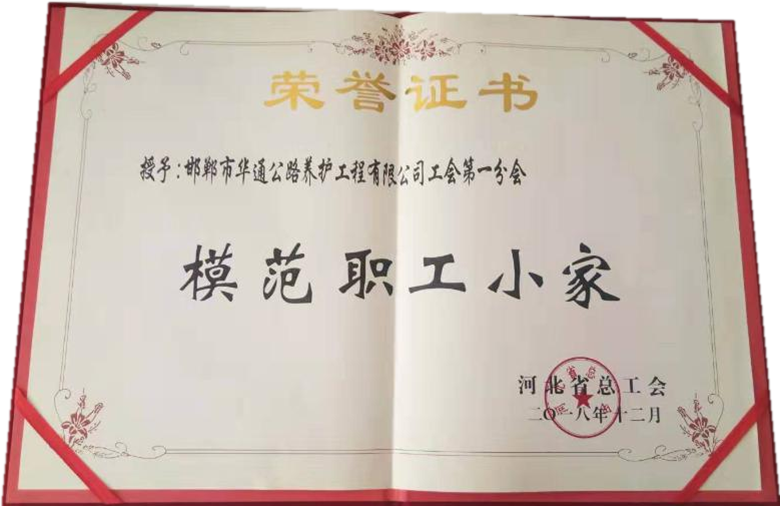 荣誉证书
授予:邯郸市华通公路养护工程有限公司工会第一分会
模范职工小家
河北省总工会
二〇一八年十二月